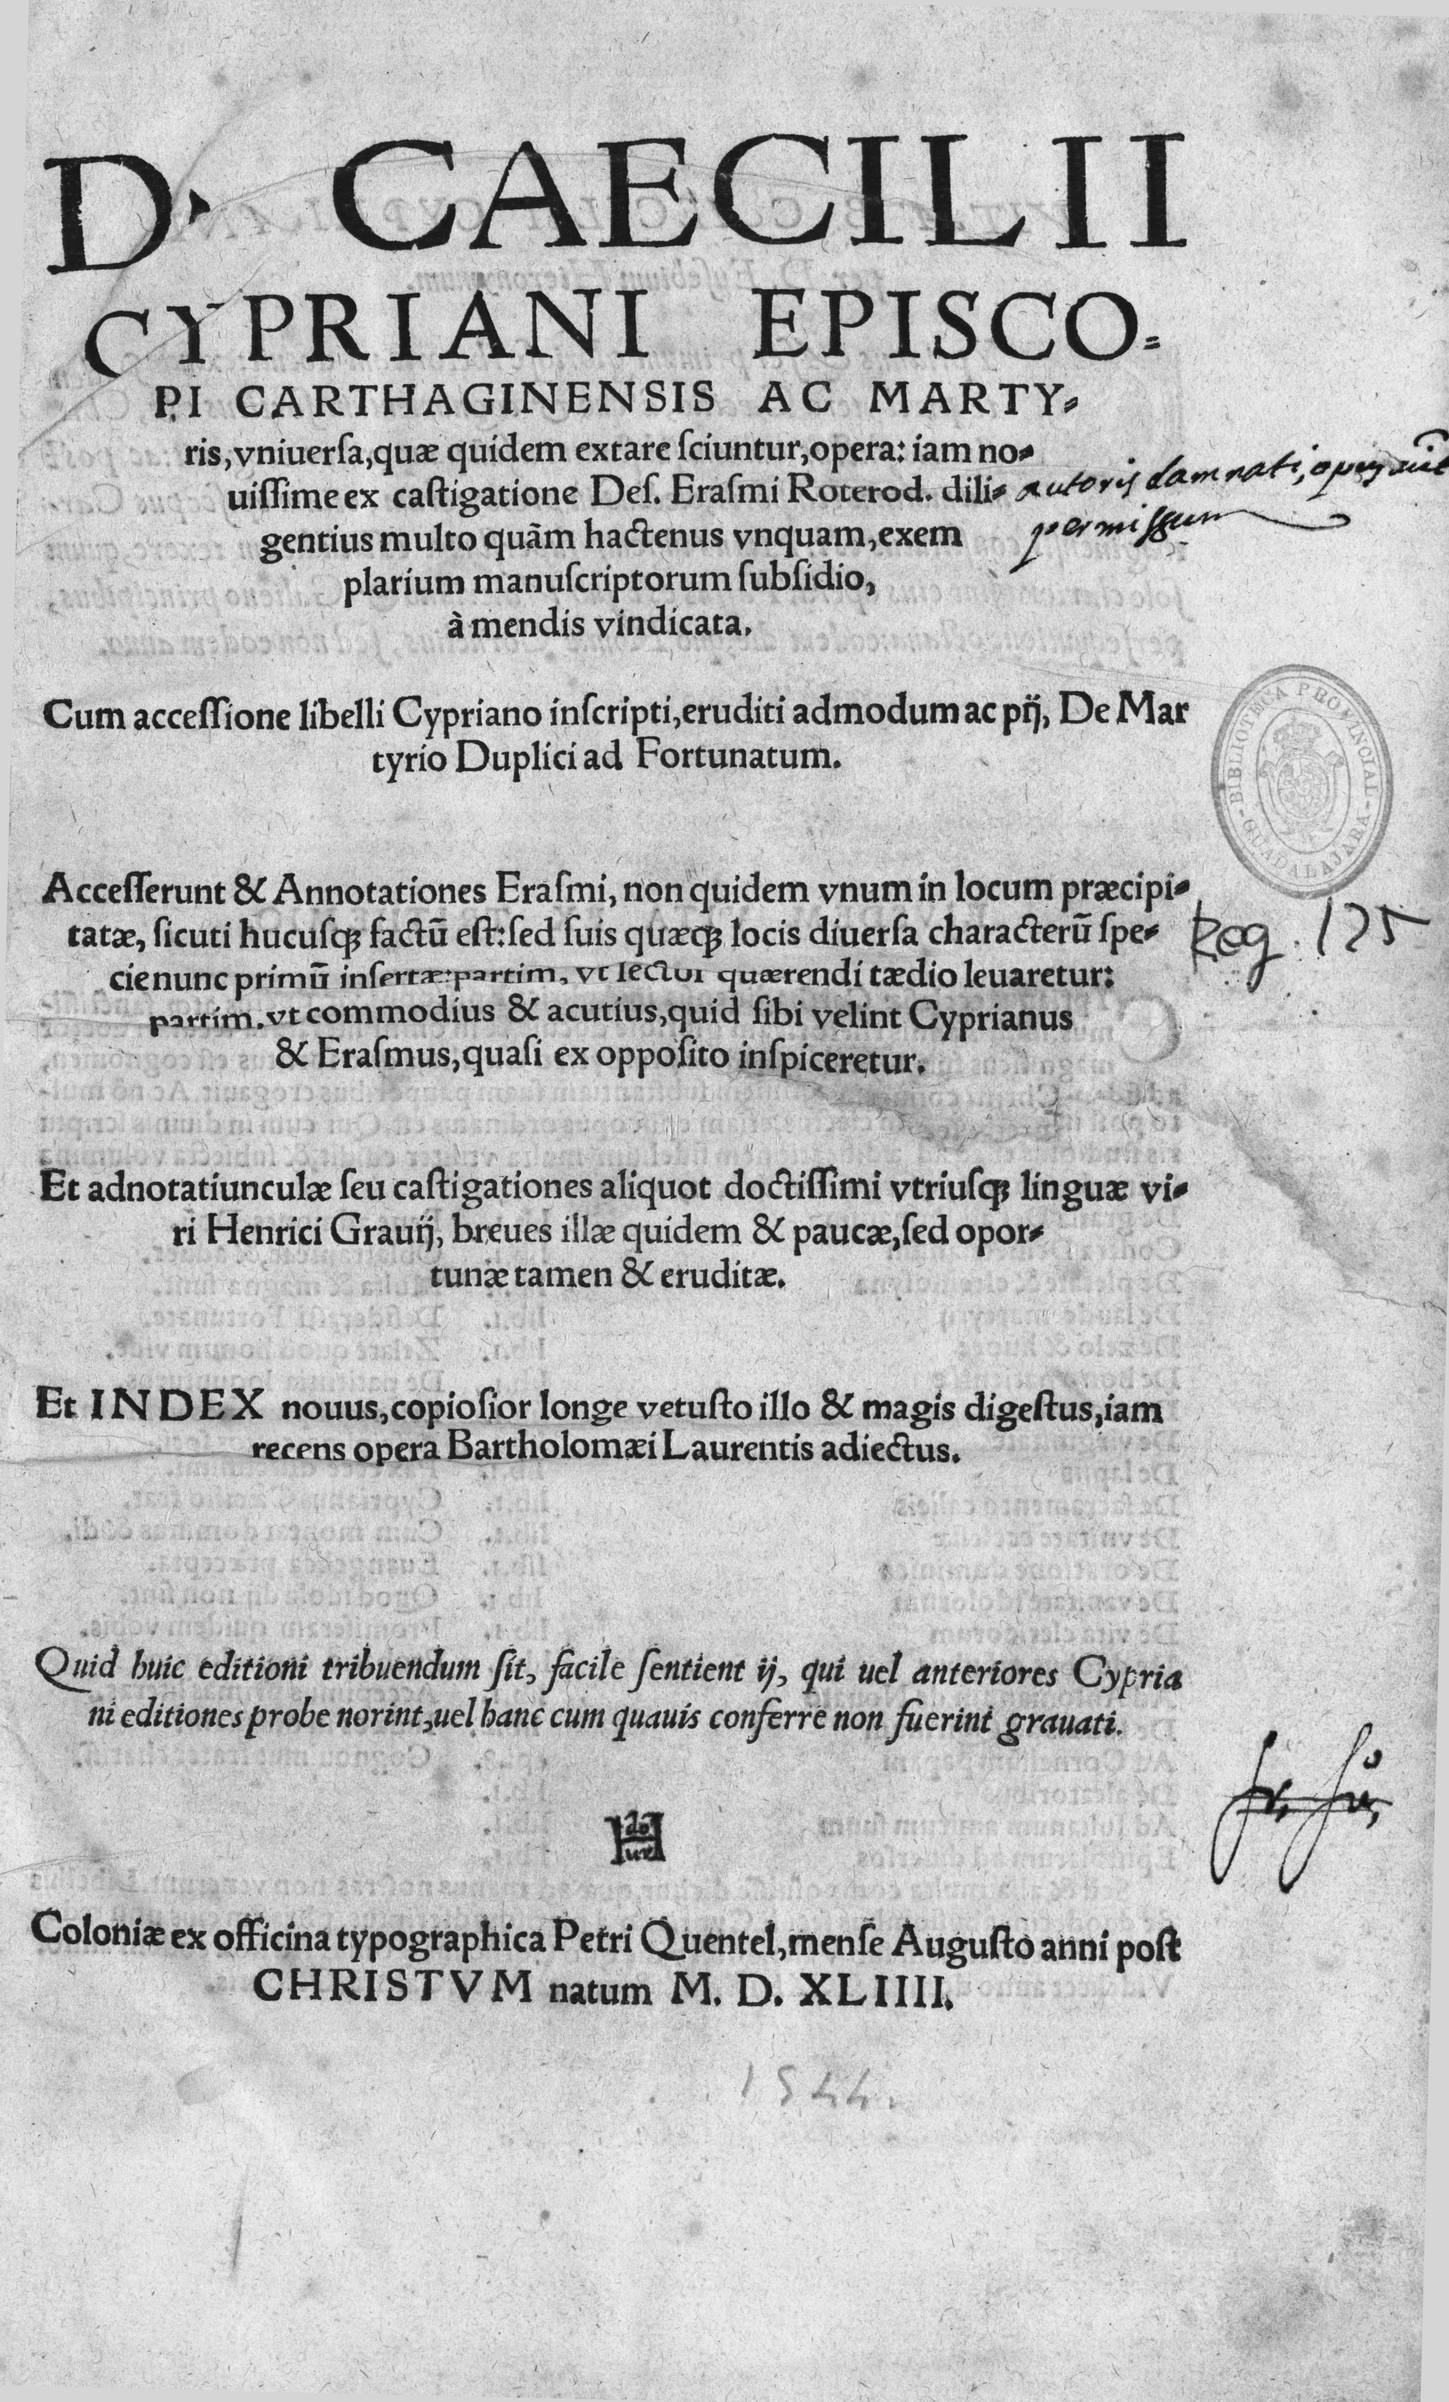 D. CAECILII
CYPRIANI EPISCO=
PI CARTHAGINENSIS AC MARTY=
ris, vniuerſa, quæ quidem extare ſciuntur, opera: iam no=
uiſſime ex caſtigatione Deſ. Eraſmi Roterod. dili=
autoris damnati, opus
gentius multo quãm hactenus vnquam, exem
permissum
plarium manuſcriptorum ſubſidio,
à mendis vindicata.
Cum acceſſione libelli Cypriano inſcripti, eruditi admodum ac pij, De Mar
tyrio Duplici ad Fortunatum.
BIBLIOTECA PROVINCIAL - GUADALAJARA -
Acceſſerunt & Annotationes Eraſmi, non quidem vnum in locum præcipi=
tatæ, ſicuti hucuſq; factũ eſt: ſed ſuis quæq; locis diuerſa characterũ ſpe=
Reg. 125
cie nunc primũ inſertæ: partim, vt lector quærendi tædio leuaretur:
partim, vt commodius & acutius, quid ſibi velint Cyprianus
& Eraſmus, quaſi ex oppoſito inſpiceretur.
Et adnotatiunculæ ſeu caſtigationes aliquot doctiſſimi vtriuſq; linguæ vi=
ri Henrici Grauij, breues illæ quidem & paucæ, ſed opor=
tunæ tamen & eruditæ.
Et INDEX nouus, copioſior longe vetuſto illo & magis digeſtus, iam
recens opera Bartholomæi Laurentis adiectus.
Quid huic editioni tribuendum ſit, facile ſentient ij, qui uel anteriores Cypria
ni editiones probe norint, uel hanc cum quauis conferre non fuerint grauati.
Coloniæ ex officina typographica Petri Quentel, menſe Auguſto anni poſt
CHRISTVM natum M. D. XLIIII.
1544.